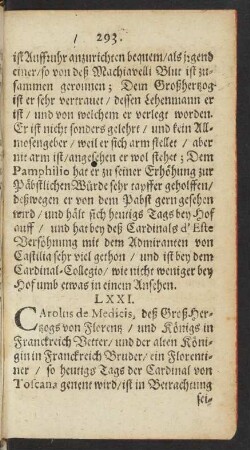 / 293.
ist Auffruhr anzurichten bequem / als jrgend
einer / so von deß Machiavelli Blut ist zu-
sammen geronnen; Dem Großhertzog
ist er sehr vertrauet / dessen Lehenmann er
ist / und von welchem er verlegt worden.
Er ist nicht sonders gelehrt / und kein All-
mosengeber / weil er sich arm stellet / aber
nit arm ist / angesehen er wol stehet; Dem
Pamphilio hat er zu seiner Erhöhung zur
Päbstlichen Würde sehr tapffer geholffen /
deßwegen er von dem Pabst gern gesehen
wird / und hält sich heutigs Tags bey Hof
auff / und hat bey deß Cardinals d'Este
Versöhnung mit dem Admiranten von
Castilia sehr viel gethon / und ist bey dem
Cardinal-Collegio / wie nicht weniger bey
Hof umb etwas in einem Ansehen.
LXXI.
Carolus de Medicis, deß Groß-Her-
tzogs von Florentz / und Königs in
Franckreich Vetter / und der alten Köni-
gin in Franckreich Bruder / ein Florenti-
ner / so heutigs Tags der Cardinal von
Toscana genent wird / ist in Betrachtung
sei-